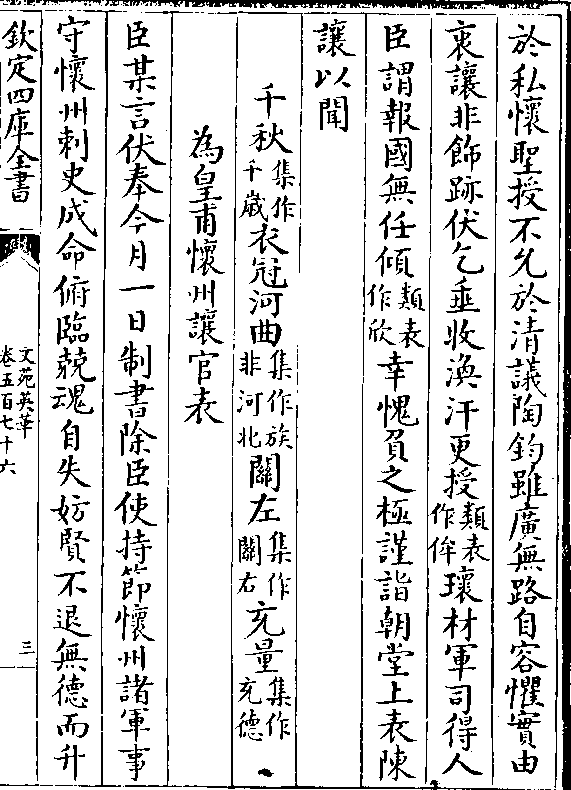 於私懷聖授不允於清議陶鈞雖廣無路自容懼實由
衷讓非飾跡伏乞垂收渙汗更授類表作侔瓌材軍司得人
臣謂報國無任傾類表作欣幸愧負之極謹詣朝堂上表陳
讓以聞
千秋集作千歲衣冠河曲集作族非河北關左集作關右充量集作充德
為皇甫懷州讓官表
臣某言伏奉今月一日制書除臣使持節懷州諸軍事
守懷州刺史成命俯臨兢魂自失妨賢不退無德而升
欽定四庫全書
文苑英華
卷五百七十六
三